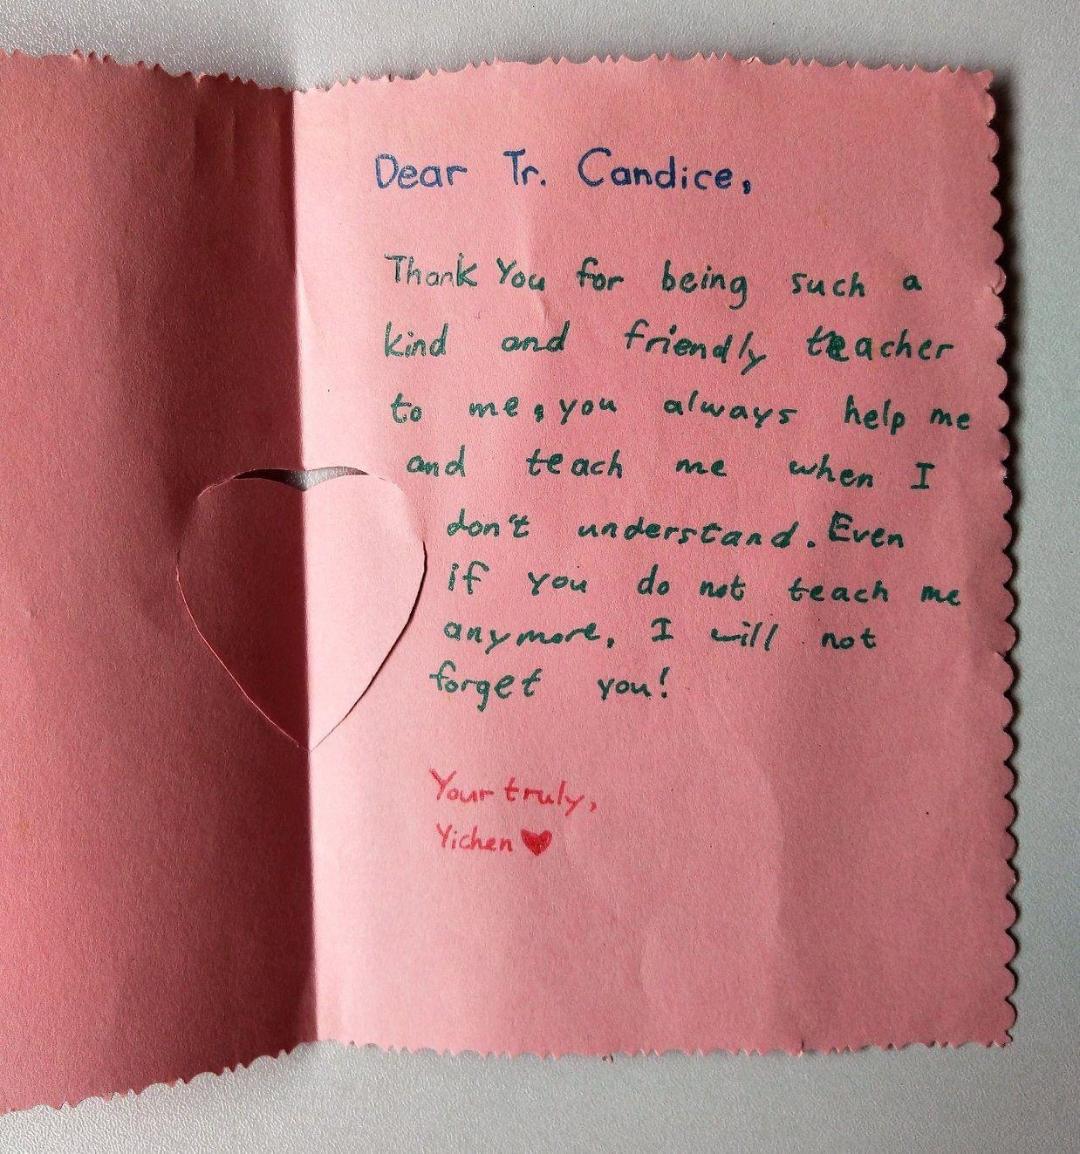 Dear Tr. Candice,
Thank You for being such a
kind and friendly teacher
to me, you always help me
and teach me when I
don't understand. Even
if you do not teach me
anymore, I will not
forget you!
Your truly,
Yichen ♥